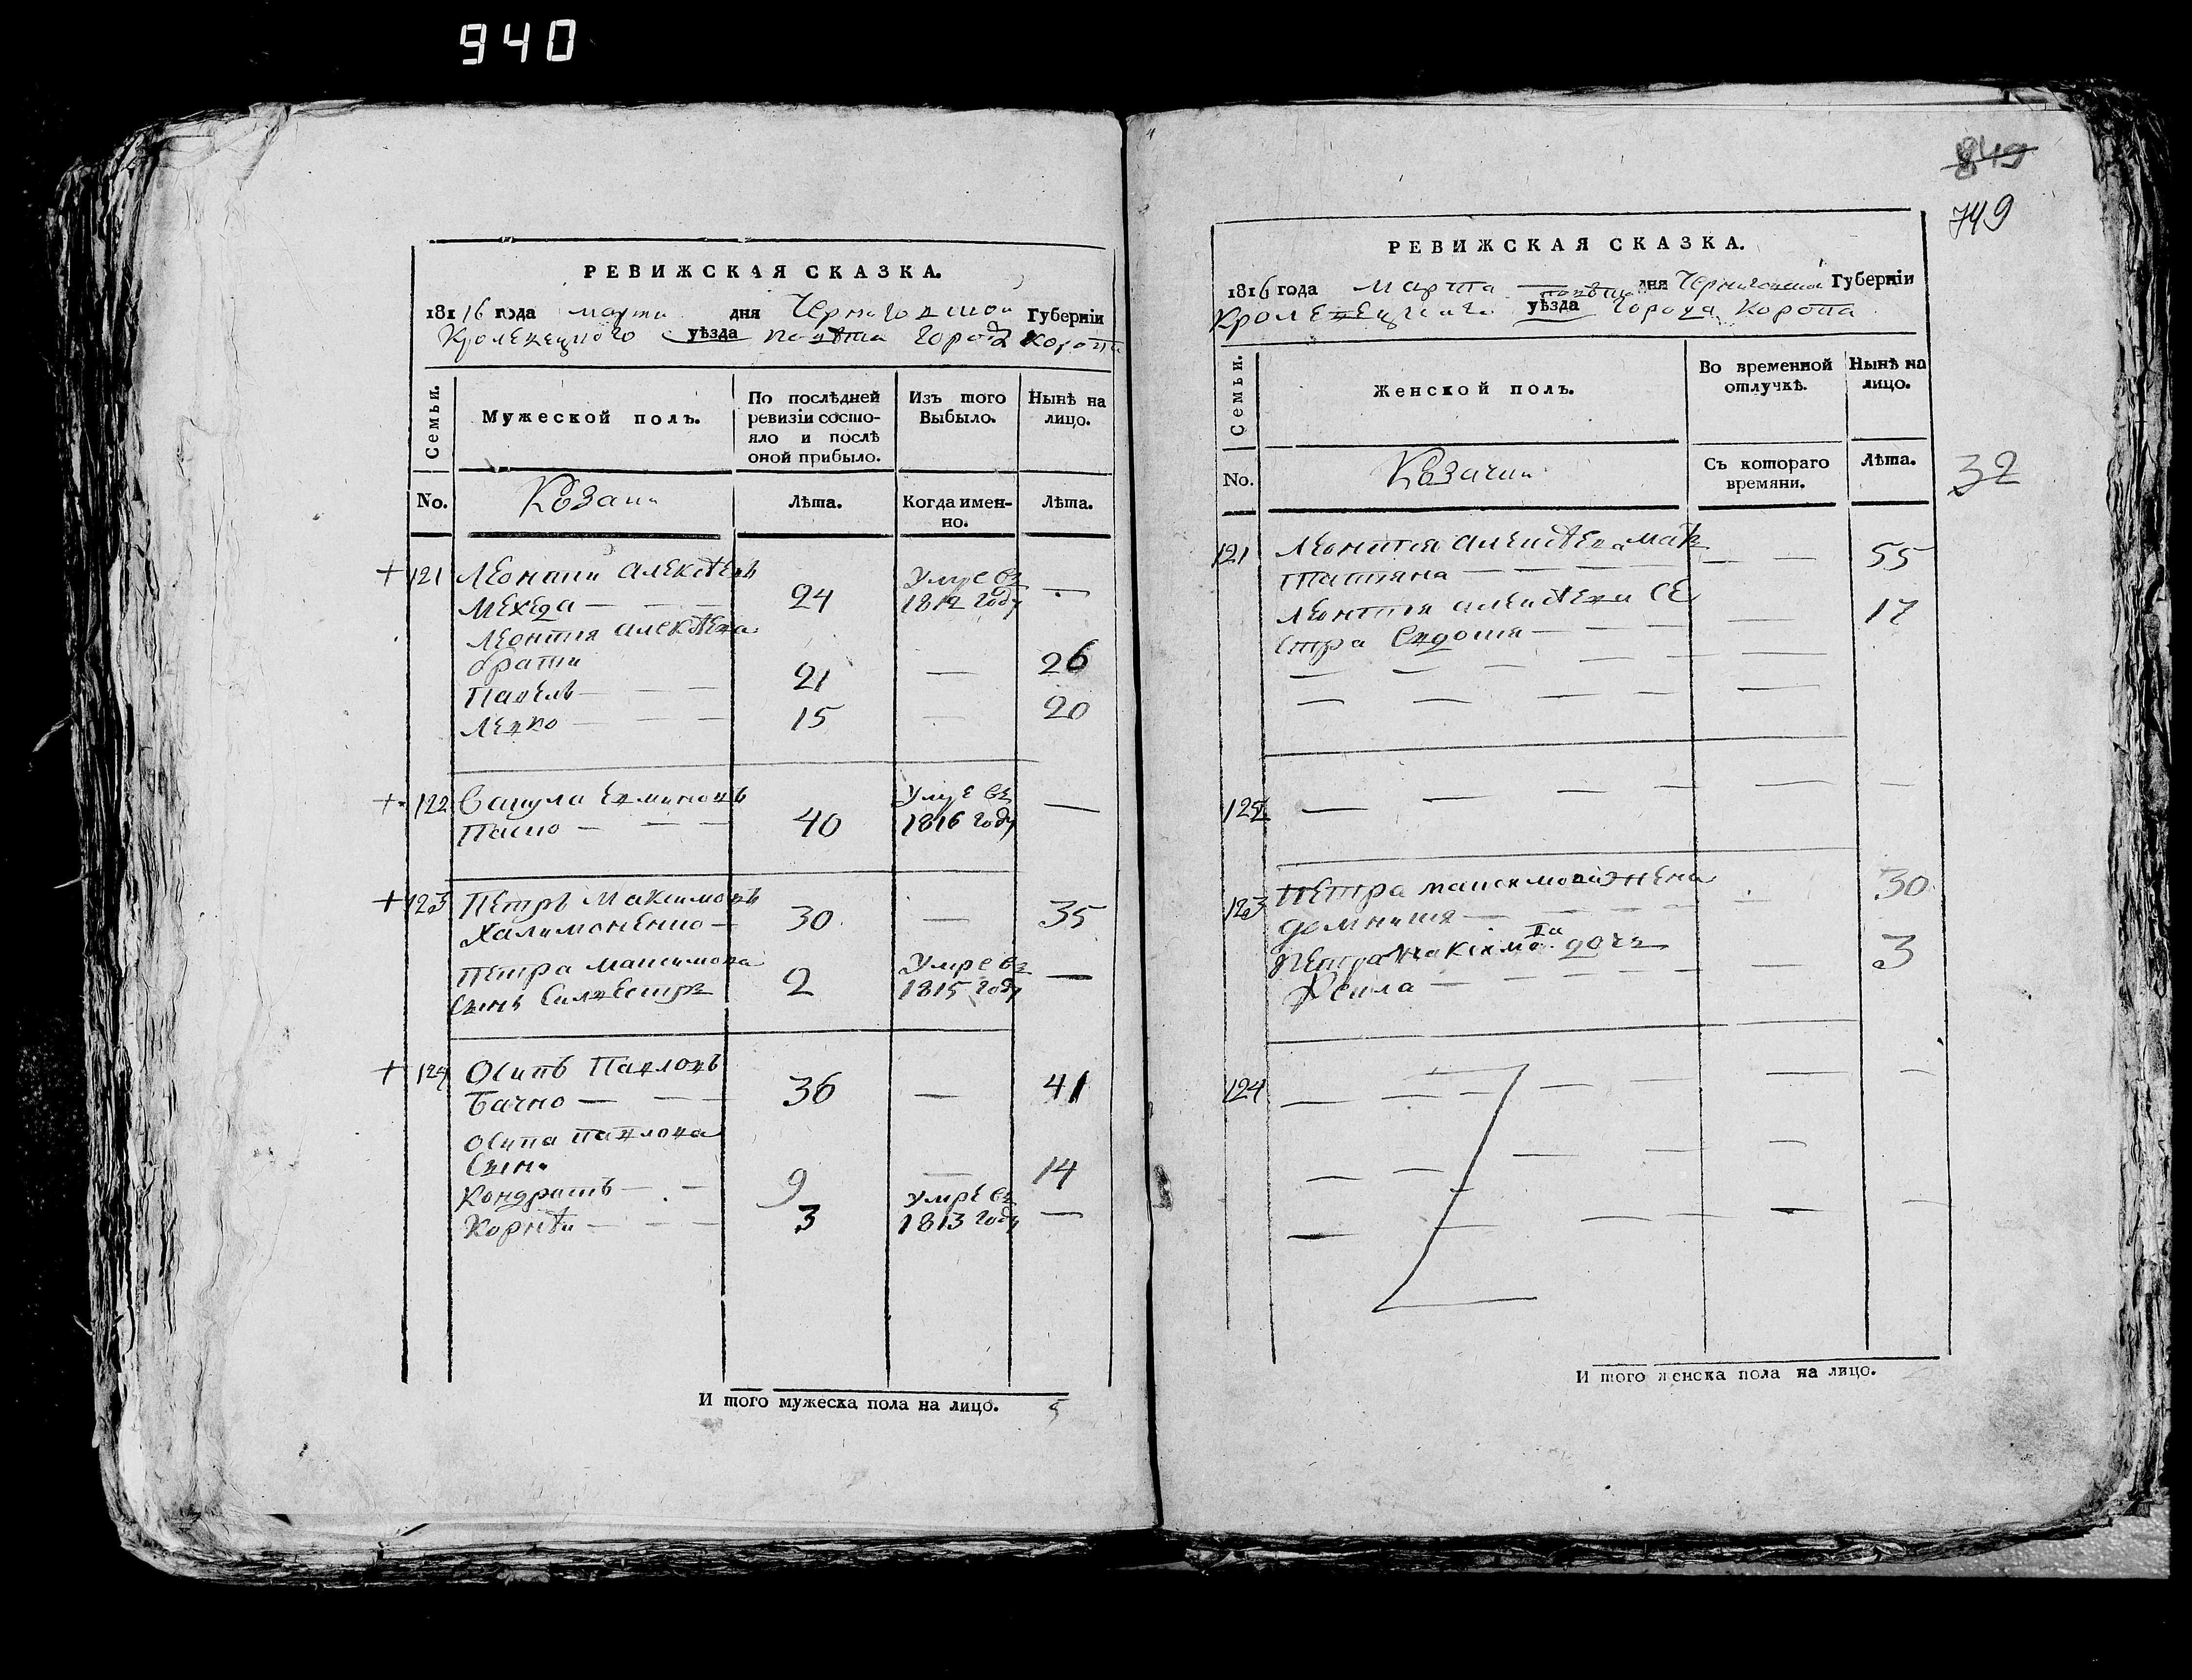 940
РЕВИЖСКАЯ СКАЗКА.
1816 года марта дня Черниговской Губерніи
Кролевецкого уѣзда повѣта города Коропа
Семьи.
Мужеской полъ.
По послѣдней ревизіи состояло и послѣ оной прибыло.
Изъ того Выбыло.
Нынѣ на лицо.
No.
Козаки
Лѣта.
Когда именно.
Лѣта.
121 Леонтий Алексѣевъ Умре въ
Мехеда — 24 1812 году —
Леонтия Алексѣева
брати
Павелъ — 21 — 26
Левко — 15 — 20
122 Вакула Умре въ
40 1816 году —
123 Петръ Максимовъ
Халимоненко — 30 — 35
Петра Максимова Умре въ
Сынъ Силвестръ 2 1815 году —
124 Осипъ Павловъ
Бачко — 36 — 41
Осипа Павлова
Сыны
Кондратъ — 9 — 14
Корнѣй — 3 Умре въ 1813 году —
И того мужеска пола на лицо. 5
849
749
РЕВИЖСКАЯ СКАЗКА.
1816 года марта — дня Черниговской Губерніи
Кролевецкого повѣта уѣзда города Коропа
Семьи.
Женской полъ.
Во временной отлучкѣ.
Нынѣ на лицо.
No.
Козачки
Съ котораго времяни.
Лѣта.
32
121 Леонтия Алексѣева мать
Татияна — — 55
Леонтия Алексѣева се
стра Евдокия — — 17
122
123 Петра Максимова жена
Домникия — — 30
Петра Максимова дочь
Ксила — — 3
124
И того женска пола на лицо.